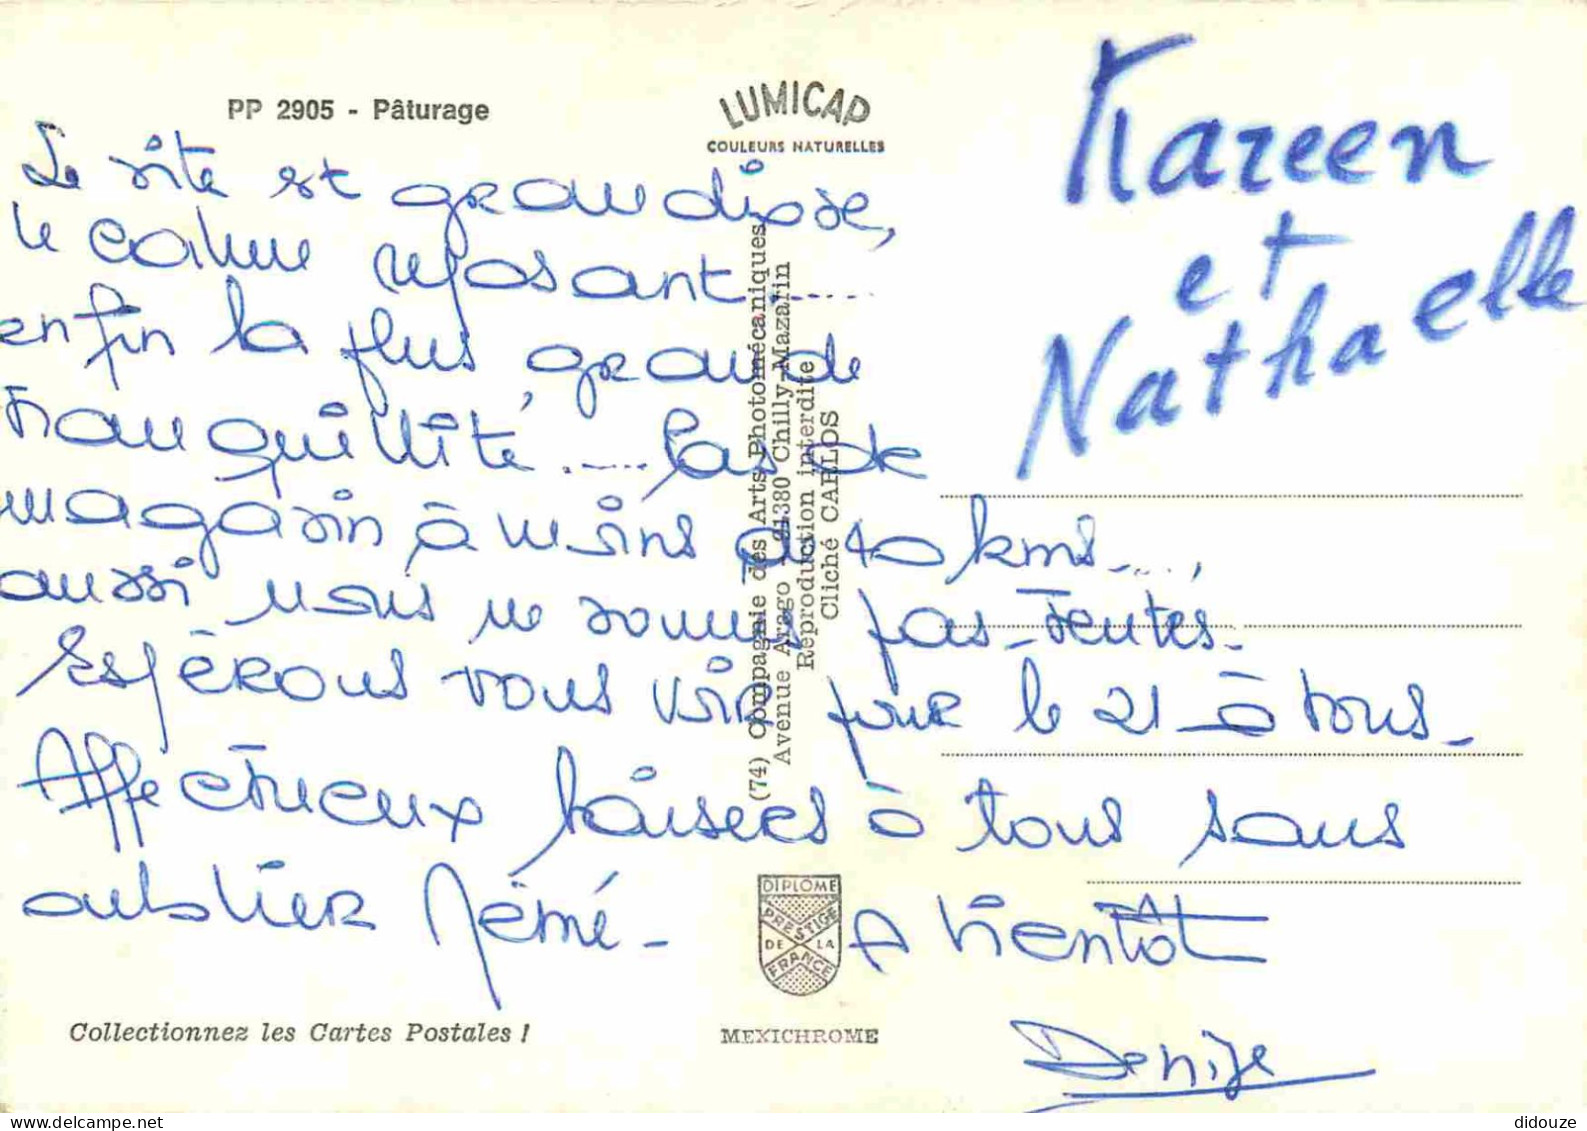 PP 2905 - Pâturage
LUMICAP
COULEURS NATURELLES
Kareen
et
Nathaelle
Le site est grandiose,
le calme reposant.......
enfin la plus grande
tranquillité...... Pas de
magasin à moins de 40 kms.....,
aussi nous ne sommes pas tentés.
Espérons vous voir pour le 21 à tous.
Affectueux baisers à tous sans
oublier Mémé - A bientôt
Denise
(74) Compagnie des Arts Photomécaniques
Avenue Arago - 91380 Chilly-Mazarin
Reproduction interdite
Cliché CARLOS
DIPLOME
PRESTIGE
DE LA
FRANCE
Collectionnez les Cartes Postales !
MEXICHROME
didouze